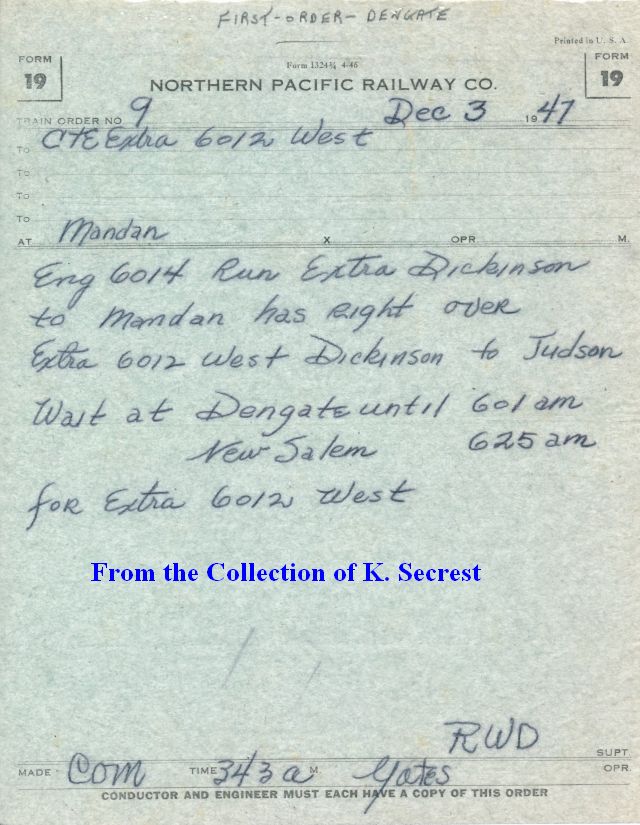 FIRST-ORDER-DENGATE
Printed in U. S. A.
FORM 19
Form 1324¾ 4-46
FORM 19
NORTHERN PACIFIC RAILWAY CO.
TRAIN ORDER NO. 9 Dec 3 1947
To C&E Extra 6012 West
To
To
To
AT Mandan X OPR M.
Eng 6014 Run Extra Dickinson
to Mandan has right over
Extra 6012 West Dickinson to Judson
Wait at Dengate until 601 am
New Salem 625 am
for Extra 6012 West
From the Collection of K. Secrest
RWD
SUPT.
MADE Com TIME 343 a M. Yates OPR.
CONDUCTOR AND ENGINEER MUST EACH HAVE A COPY OF THIS ORDER